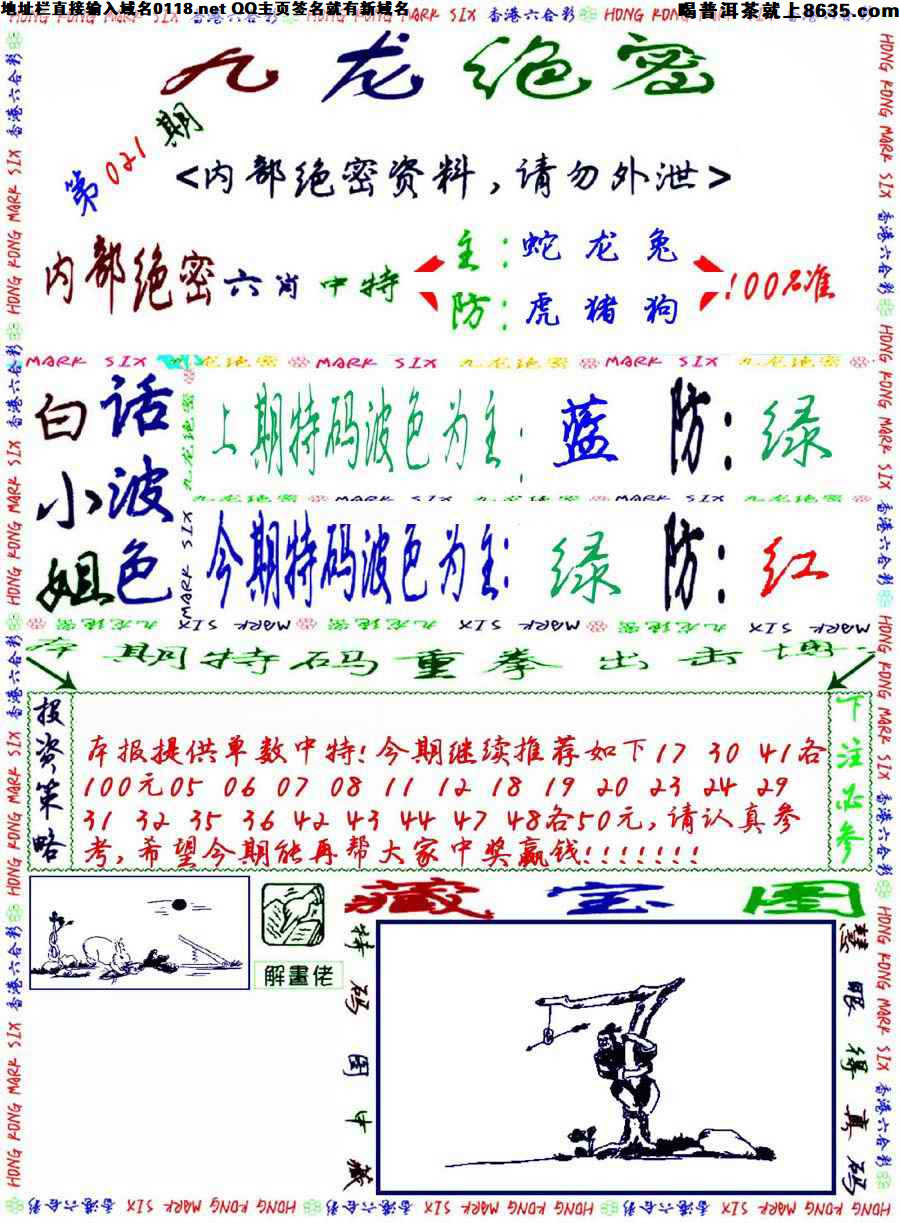 地址栏直接输入域名0118.net QQ主页签名就有新域名
喝普洱茶就上8635.com
HONG KONG MARK SIX 香港六合彩
九龙绝密
第021期
<内部绝密资料,请勿外泄>
内部绝密六肖中特
主:蛇龙兔
防:虎猪狗
!00%准
MARK SIX 九龙绝密 MARK SIX 九龙绝密 MARK SIX 九龙绝密
白小姐
话波色
上期特码波色为主:蓝 防:绿
今期特码波色为主:绿 防:红
本期特码重拳出击
投资策略
本报提供单数中特!今期继续推荐如下17 30 41各
100元05 06 07 08 11 12 18 19 20 23 24 29
31 32 35 36 42 43 44 47 48各50元,请认真参
考,希望今期能再帮大家中奖赢钱!!!!!!!
下注必参
解畫佬
藏宝图
特码图中藏
慧眼得真码